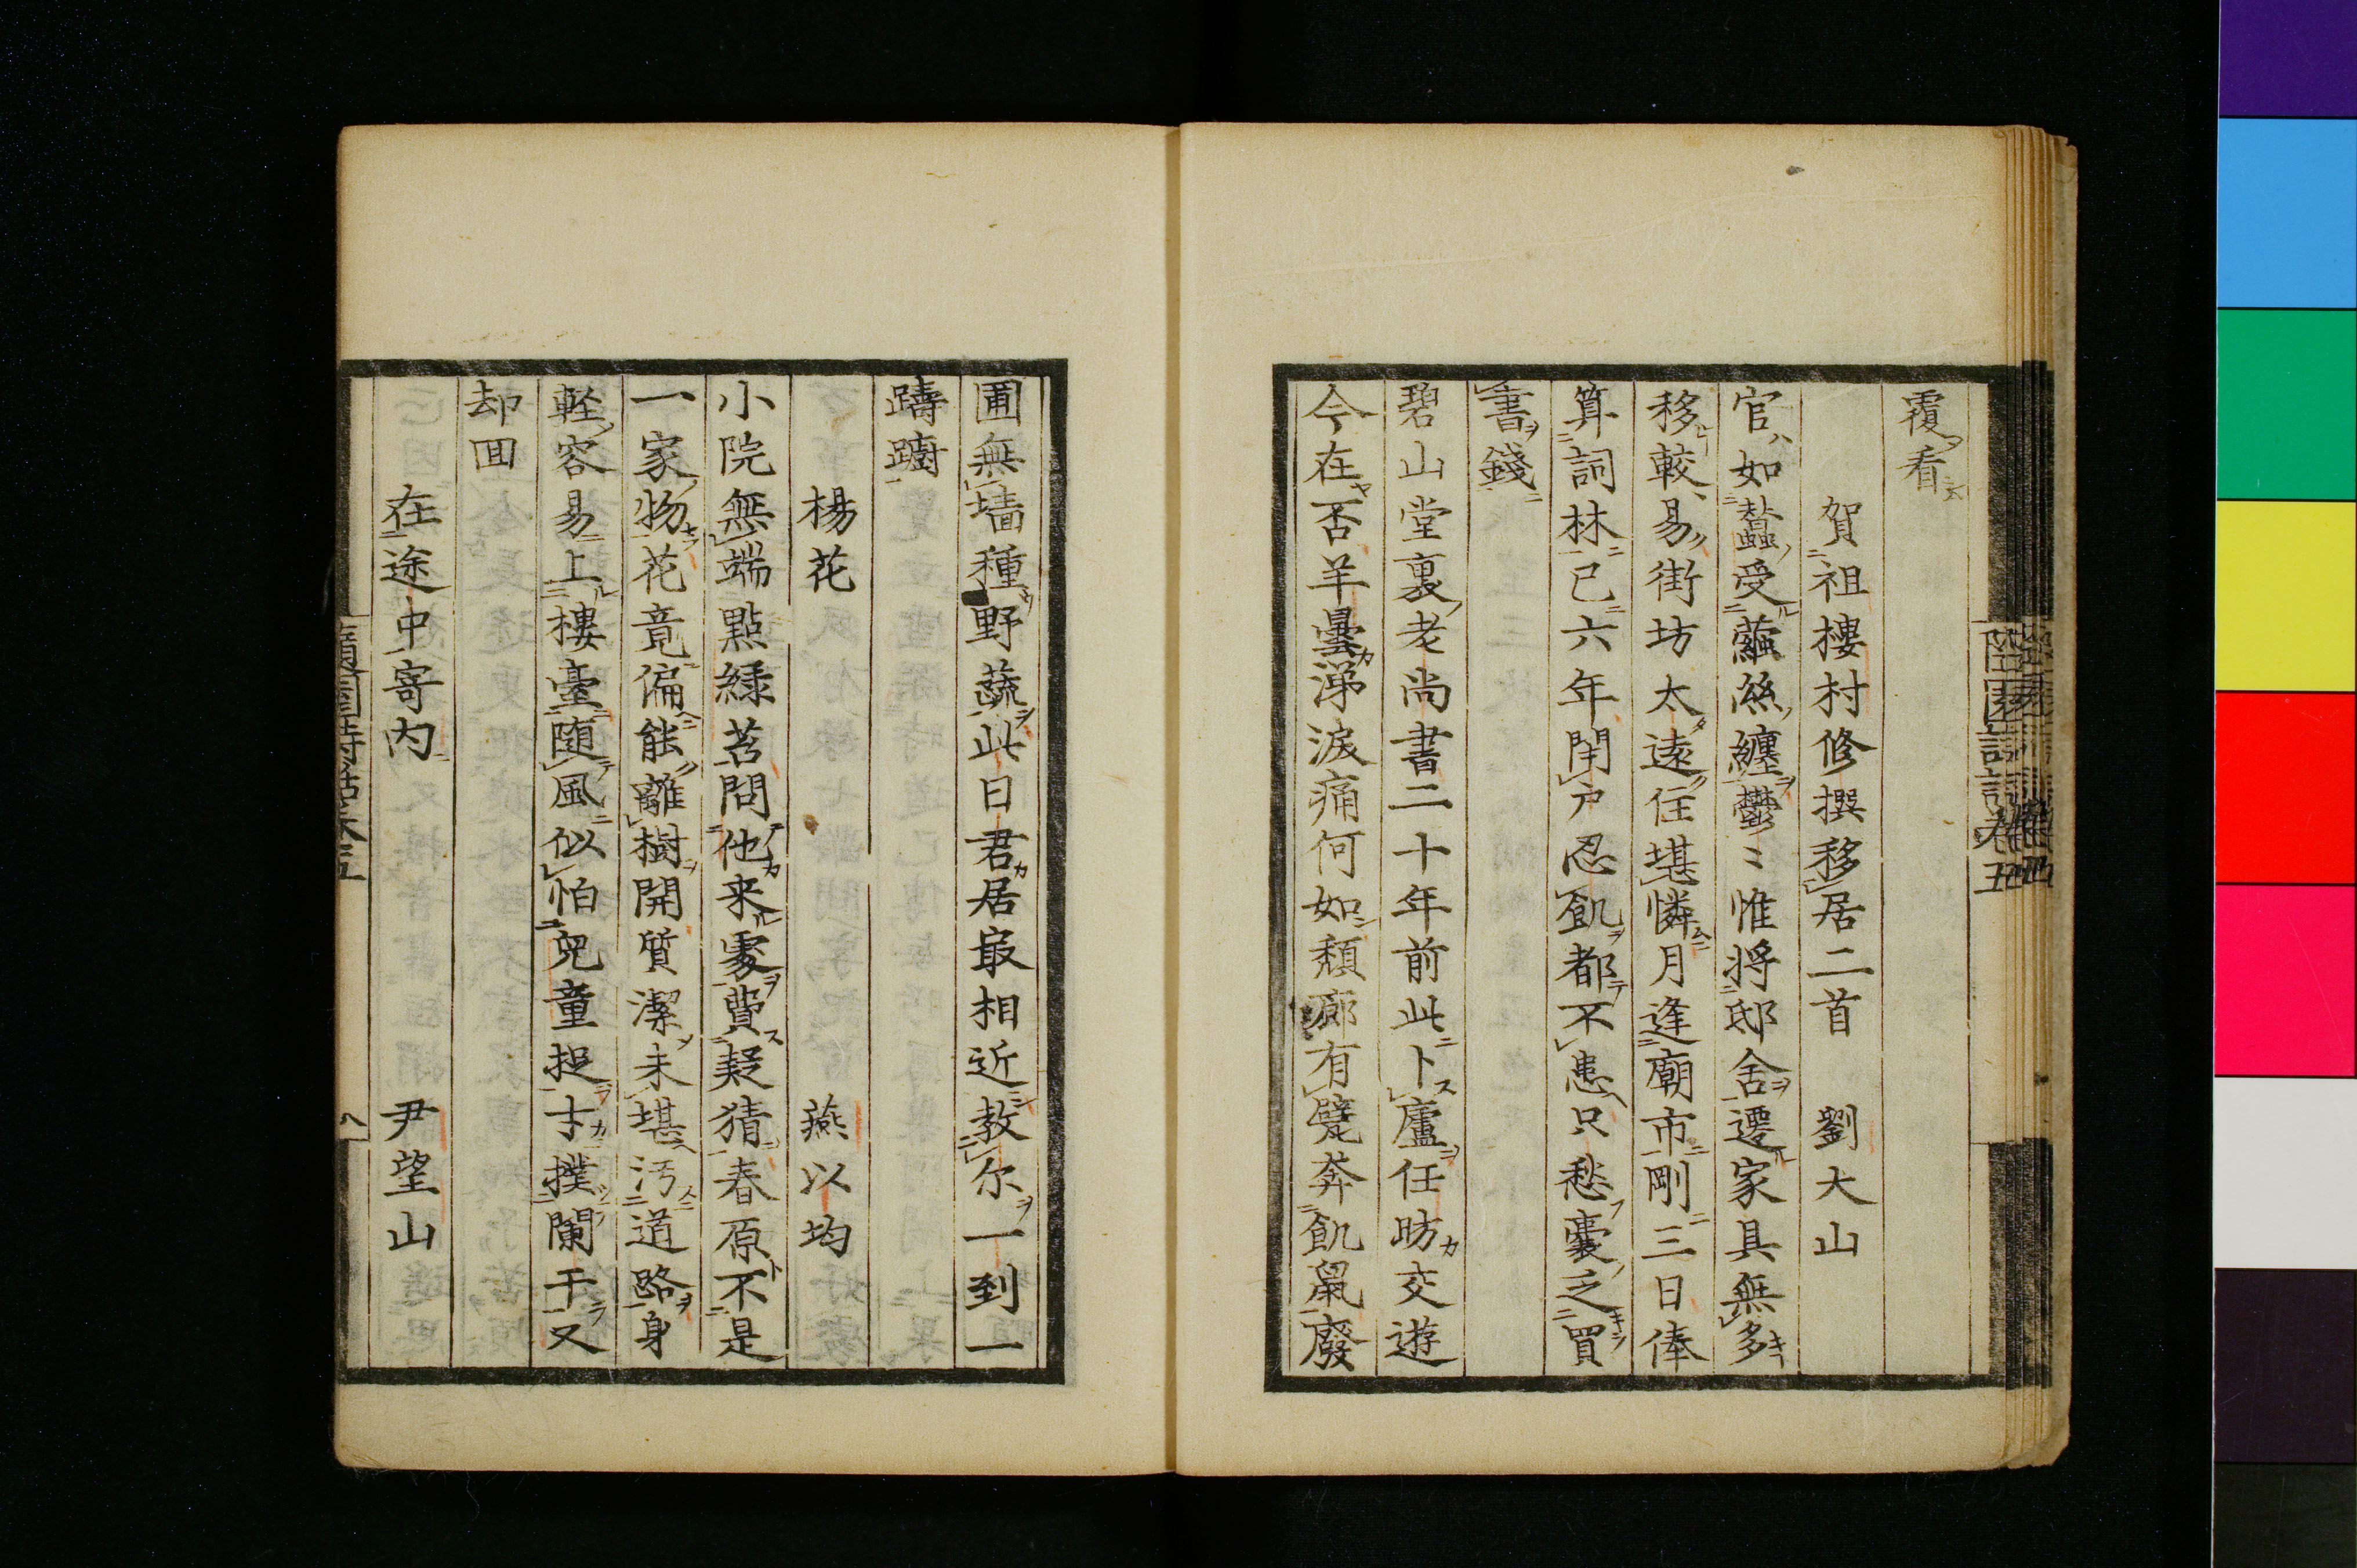 覆看
賀祖樓村修撰移居二首　劉大山
官如蠶受繭絲纏鬱〻惟將邸舍遷家具無多
移較易街坊太遠住堪憐月逢廟市剛三日俸
算詞林已六年閉戸忍飢都不患只愁囊乏買
書錢
碧山堂裏老尚書二十年前此卜廬任昉交遊
今在否羊曇涕淚痛何如頽廊有甓奔飢鼠廢
圃無墻種野蔬此日君居最相近教尓一到一
躊躕
楊花　燕以均
小院無端點綠苔問他来處費疑猜春原不是
一家物花竟偏能離樹開質潔未堪汚道路身
輕容易上樓臺随風似怕兒童捉才撲闌干又
却回
在途中寄内　尹望山
隨園詩話卷五
八